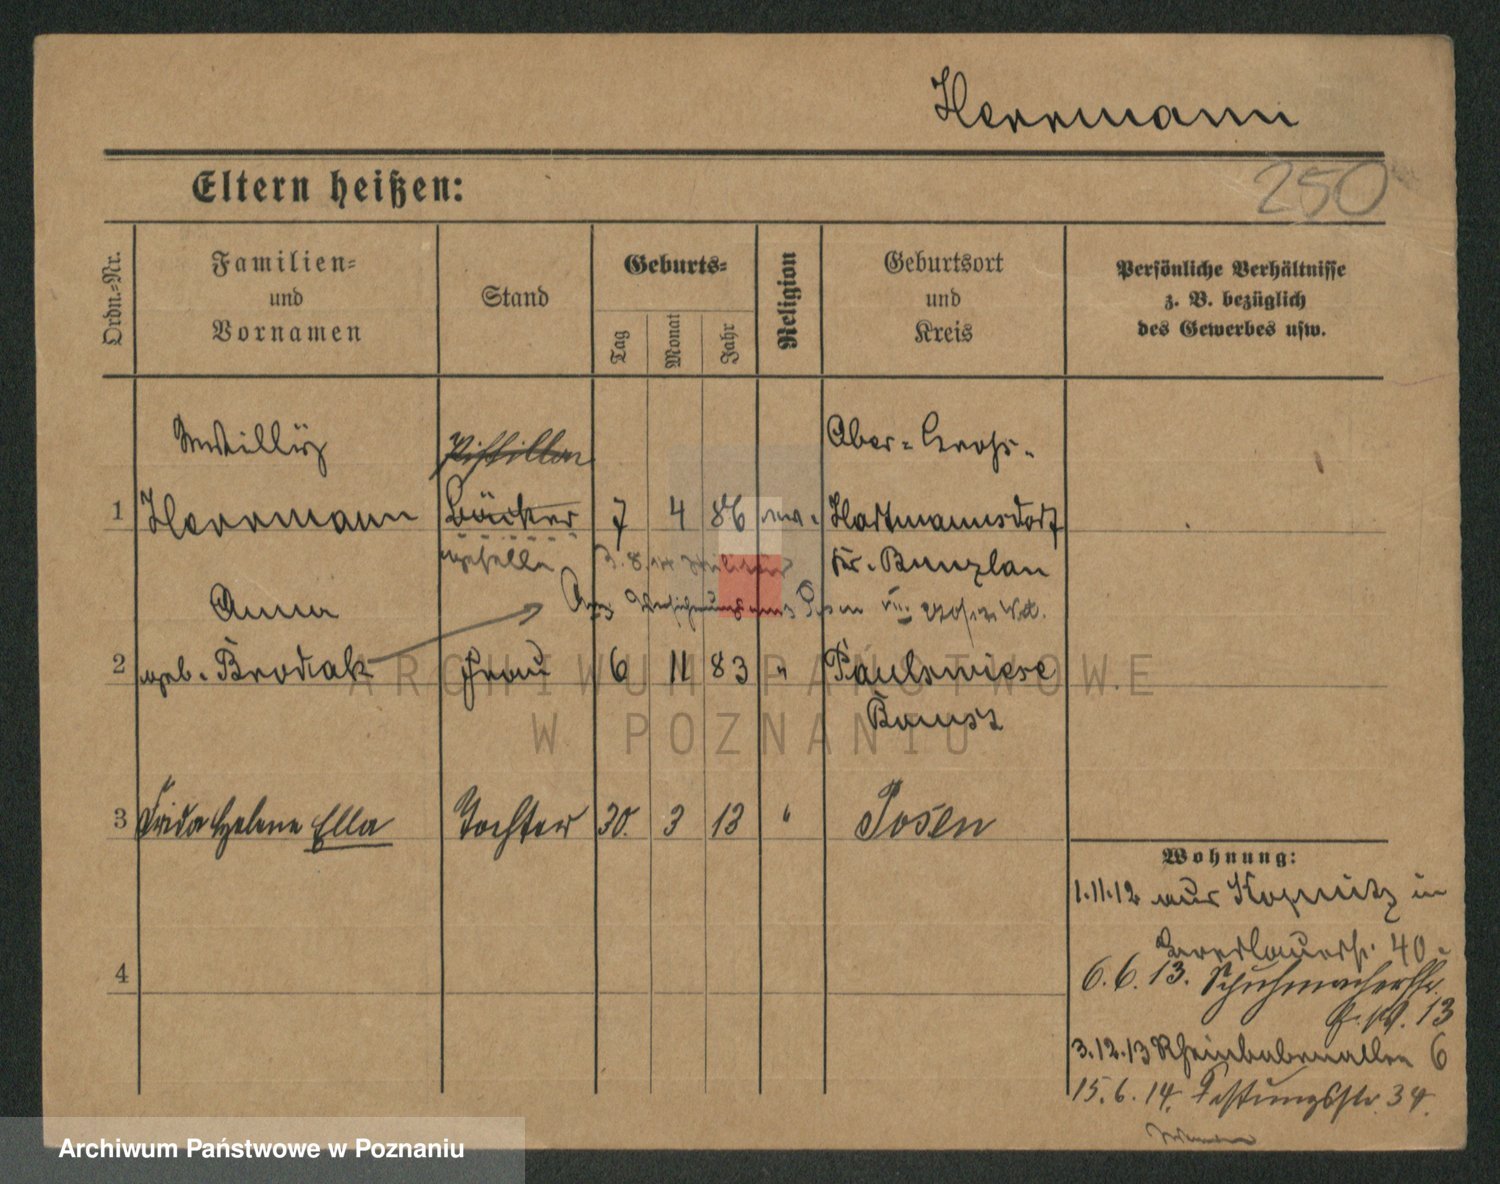 Herrmann
250
Eltern heißen:
Ordn.-Nr.
Familien-
und
Vornamen
Stand
Geburts-
Tag
Monat
Jahr
Religion
Geburtsort
und
Kreis
Persönliche Verhältnisse
z. B. bezüglich
des Gewerbes usw.
Willy
Ober-Gross-
1 Herrmann Bäcker 7 4 86 Hartmannsdorf
geselle 3.8.14 Militär Kr. Bunzlau
Anna
2 geb. Brodiak Frau 6 11 83 " Paulswiese
Bomst
3 Frida Helene Ella Tochter 30. 3 13 " Posen
4
Wohnung:
1.11.12 aus Kopnitz in
40.
6.6.13. Schuhmacherstr.
13
3.12.13 Rheinbabenallee 6
15.6.14. Festungsstr. 34.
ARCHIWUM PAŃSTWOWE
W POZNANIU
Archiwum Państwowe w Poznaniu